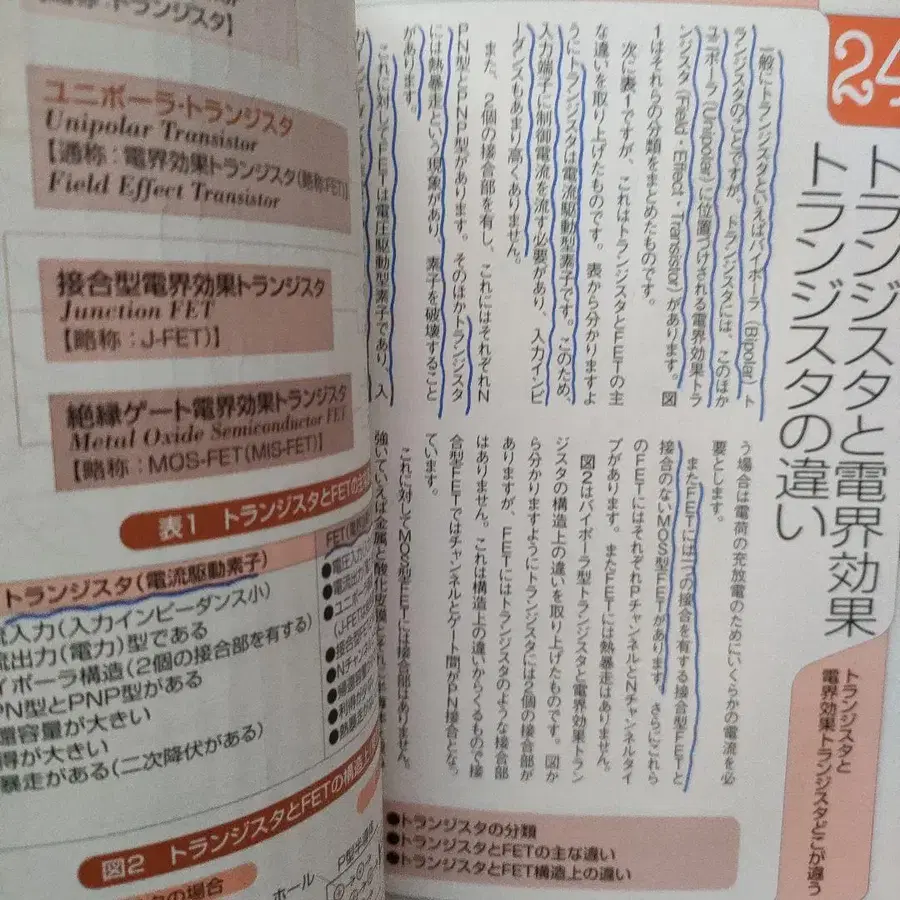 24
トランジスタと電界効果
トランジスタの違い
トランジスタと
電界効果トランジスタどこが違う
一般にトランジスタといえばバイポーラ(Bipolar)ト
ランジスタのことですが、トランジスタには、このほか
ユニポーラ(Unipolar)に位置づけされる電界効果トラ
ンジスタ(Field・Effect・Transistor)があります。図
1はそれらの分類をまとめたものです。
次に表1ですが、これはトランジスタとFETの主
な違いを取り上げたものです。表から分かりますよ
うにトランジスタは電流駆動型素子です。このため、
入力端子に制御電流を流す必要があり、入力インピ
ーダンスもあまり高くありません。
また、2個の接合部を有し、これにはそれぞれN
PN型とPNP型があります。そのほかトランジスタ
には熱暴走という現象があり、素子を破壊すること
があります。
これに対してFETは電圧駆動型素子であり、入
う場合は電荷の充放電のためにいくらかの電流を必
要とします。
またFETには一つの接合を有する接合型FETと
接合のないMOS型FETがあります。さらにこれら
のFETにはそれぞれPチャンネルとNチャンネルタイ
プがあります。またFETには熱暴走はありません。
図2はバイポーラ型トランジスタと電界効果トラン
ジスタの構造上の違いを取り上げたものです。図か
ら分かりますようにトランジスタには2個の接合部が
ありますが、FETにはトランジスタのような接合部
はありません。これは構造上の違いからくるもので接
合型FETではチャンネルとゲート間がPN接合となっ
ています。
これに対してMOS型FETには接合部はありません。
強いていえば金属と酸化皮膜
●トランジスタの分類
●トランジスタとFETの主な違い
●トランジスタとFET構造上の違い
トランジスタ】
ユニポーラ・トランジスタ
Unipolar Transistor
【通称：電界効果トランジスタ(略称FET)】
Field Effect Transistor
接合型電界効果トランジスタ
Junction FET
【略称：J-FET)】
絶縁ゲート電界効果トランジスタ
Metal Oxide Semiconductor FET
【略称：MOS-FET(MIS-FET)】
表1 トランジスタとFETの主
トランジスタ(電流駆動素子)
流入力(入力インピーダンス小)
流出力(電力)型である
イポーラ構造(2個の接合部を有する)
PN型とPNP型がある
容量が大きい
得が大きい
暴走がある(二次降伏がある)
●電圧入力
●電流出力
●ユニポー
(J-FETは
●接合型
●Nチャンネル
●利得が
●熱暴走が
図2 トランジスタとFETの構造上
の場合
ホール
P型半導体